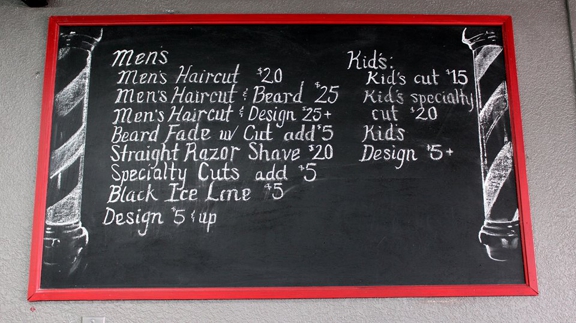 Men's
Men's Haircut $20
Men's Haircut & Beard $25
Men's Haircut & Design $25+
Beard Fade w/ Cut add $5
Straight Razor Shave $20
Specialty Cuts add $5
Black Ice Line $5
Design $5 & up
Kid's:
Kid's cut $15
Kid's specialty
cut $20
Kid's
Design $5+